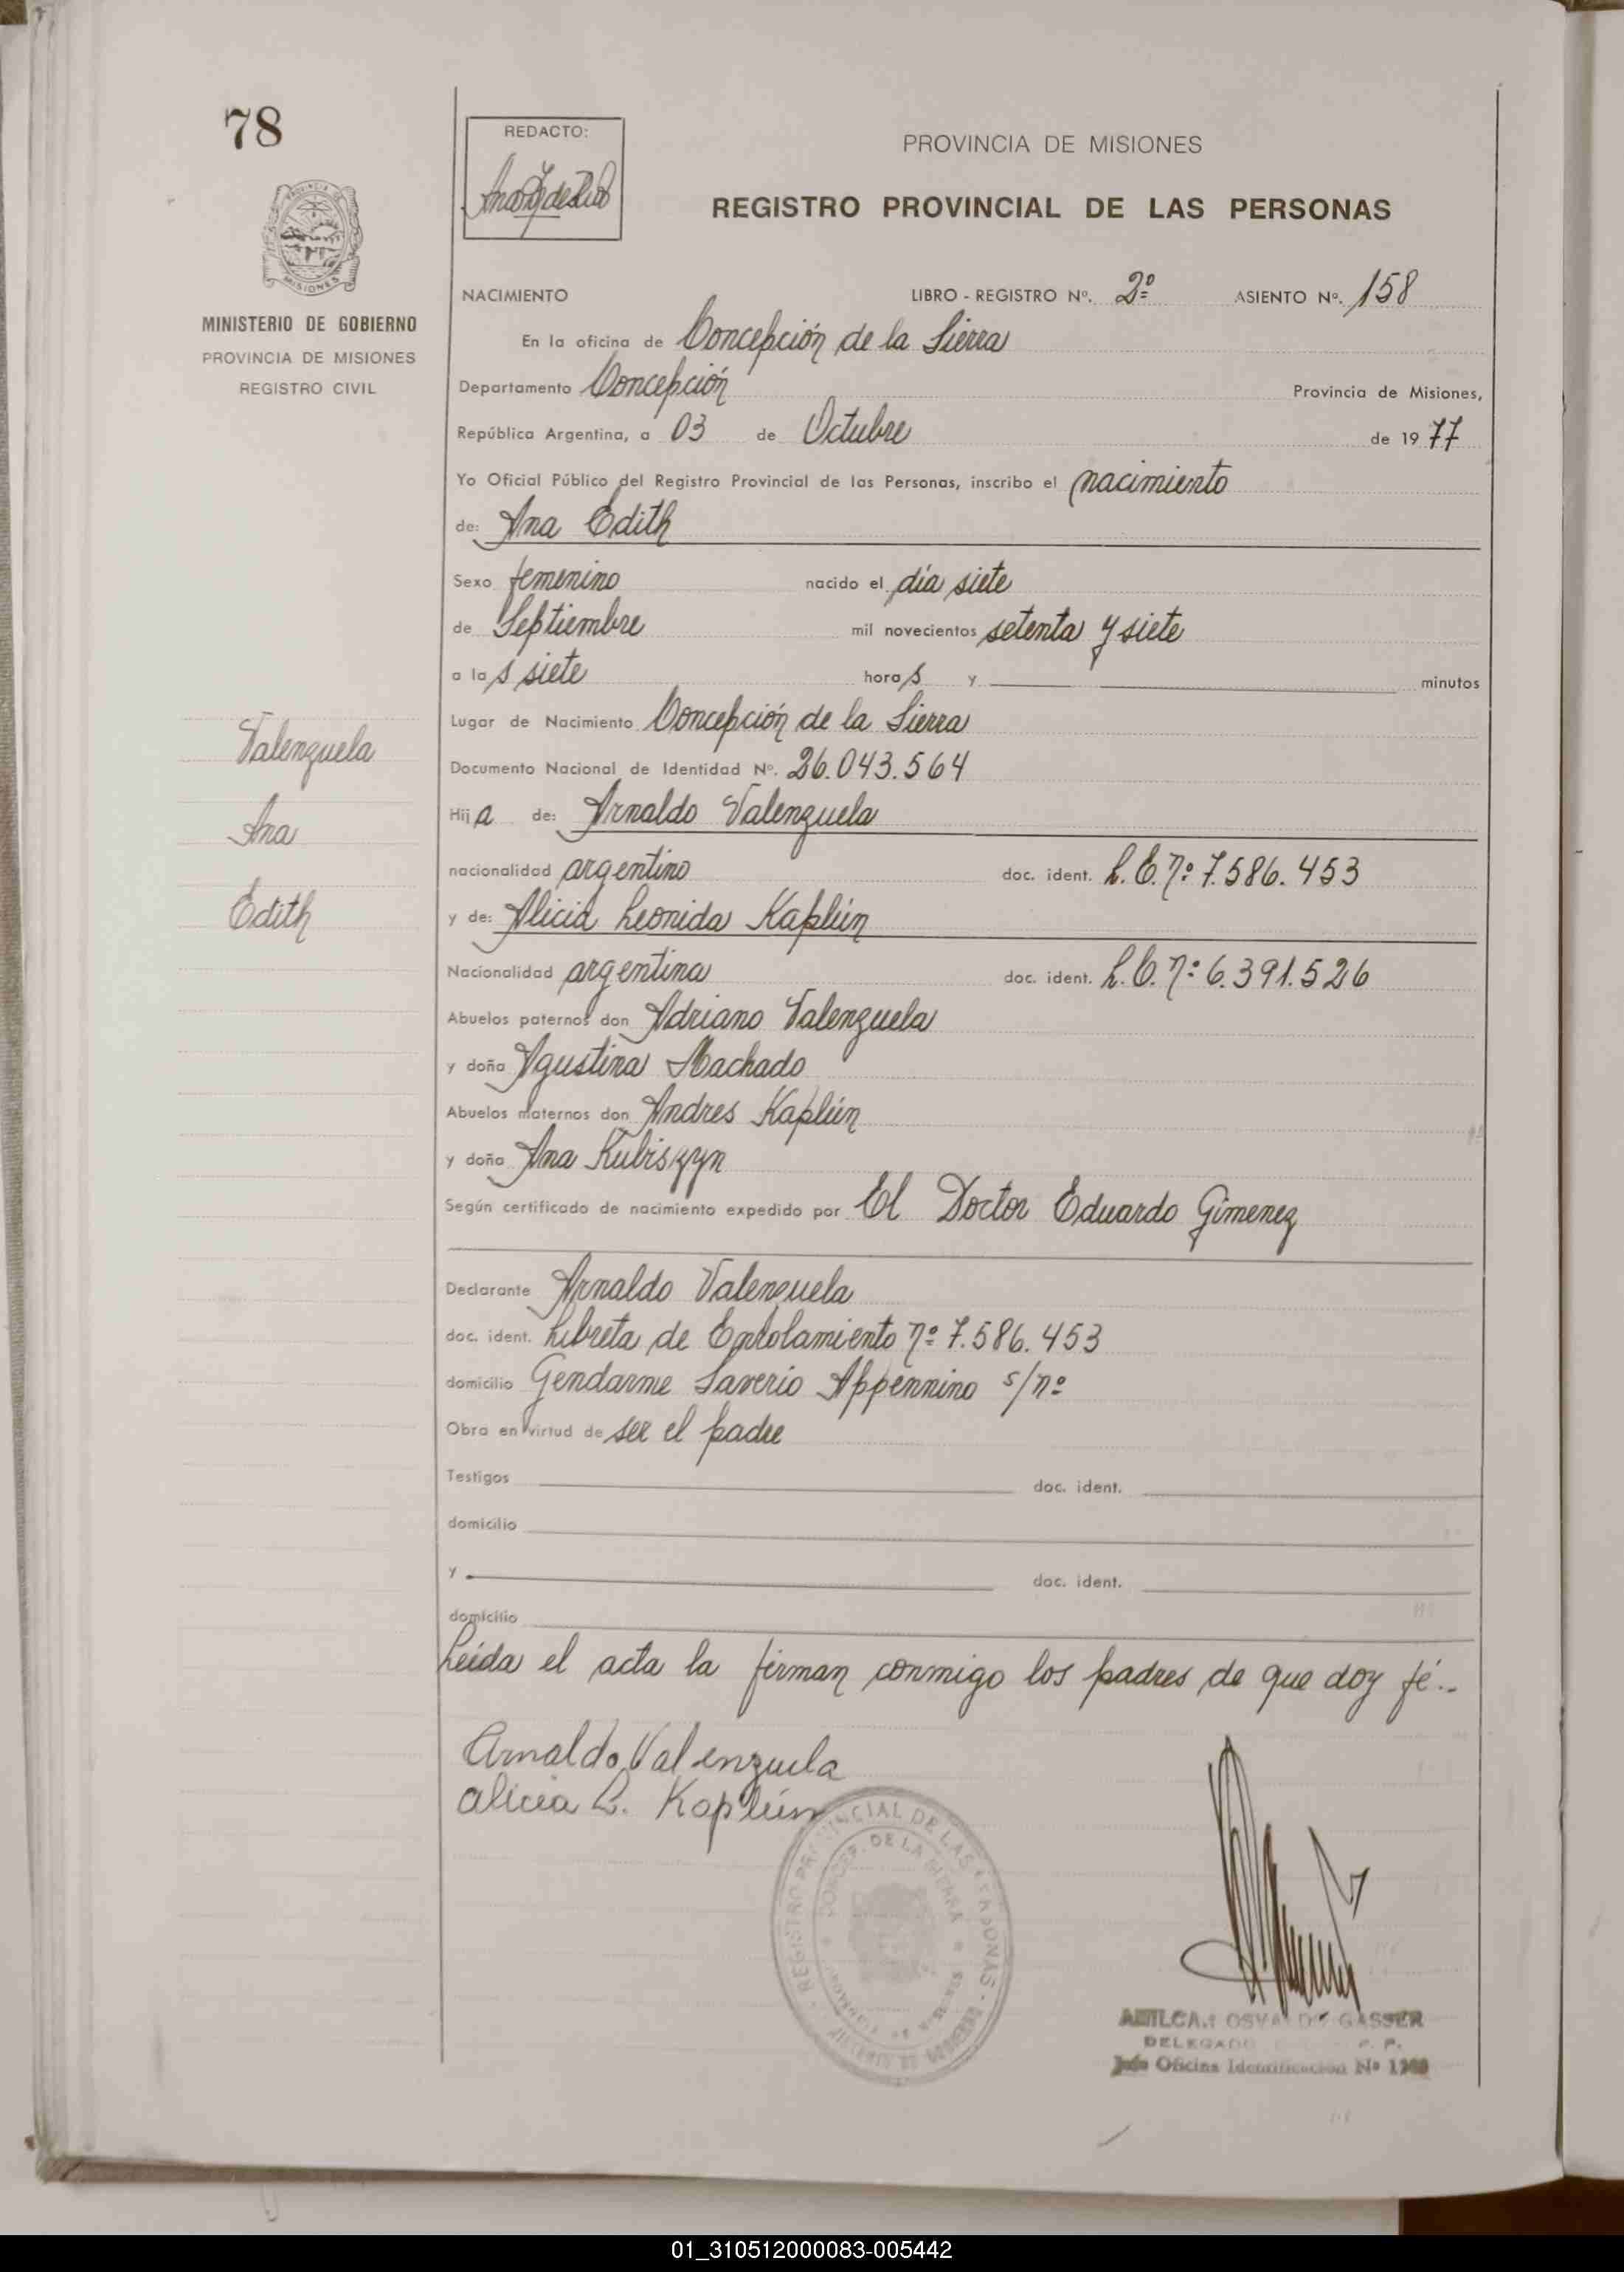 78
REDACTO:
PROVINCIA DE MISIONES
REGISTRO PROVINCIAL DE LAS PERSONAS
MISIONES
MINISTERIO DE GOBIERNO
PROVINCIA DE MISIONES
REGISTRO CIVIL
NACIMIENTO LIBRO - REGISTRO Nº. 2º ASIENTO Nº. 158
En la oficina de Concepción de la Sierra
Departamento Concepción Provincia de Misiones,
República Argentina, a 03 de Octubre de 1977
Yo Oficial Público del Registro Provincial de las Personas, inscribo el nacimiento
de: Ana Edith
Sexo femenino nacido el día siete
de Septiembre mil novecientos setenta y siete
a las siete horas y minutos
Lugar de Nacimiento Concepción de la Sierra
Documento Nacional de Identidad Nº. 26.043.564
Hija de: Arnaldo Valenzuela
nacionalidad argentino doc. ident. L.E. nº 7.586.453
y de: Alicia Leonida Kaplún
Nacionalidad argentina doc. ident. L.C. nº 6.391.526
Abuelos paternos don Adriano Valenzuela
y doña Agustina Machado
Abuelos maternos don Andres Kaplún
y doña Ana Kubiszyn
Según certificado de nacimiento expedido por El Doctor Eduardo Gimenez
Declarante Arnaldo Valenzuela
doc. ident. Libreta de Enrolamiento nº 7.586.453
domicilio Gendarme Saverio Appennino s/nº
Obra en virtud de ser el padre
Testigos doc. ident.
domicilio
y doc. ident.
domicilio
Leída el acta la firman conmigo los padres de que doy fé.-
Valenzuela
Ana
Edith
Arnaldo Valenzuela
Alicia L. Kaplún
REGISTRO PROVINCIAL DE LAS PERSONAS
CONCEP. DE LA SIERRA
OSVALDO GASSER
DELEGADO
Jefe Oficina Identificación Nº
01_310512000083-005442